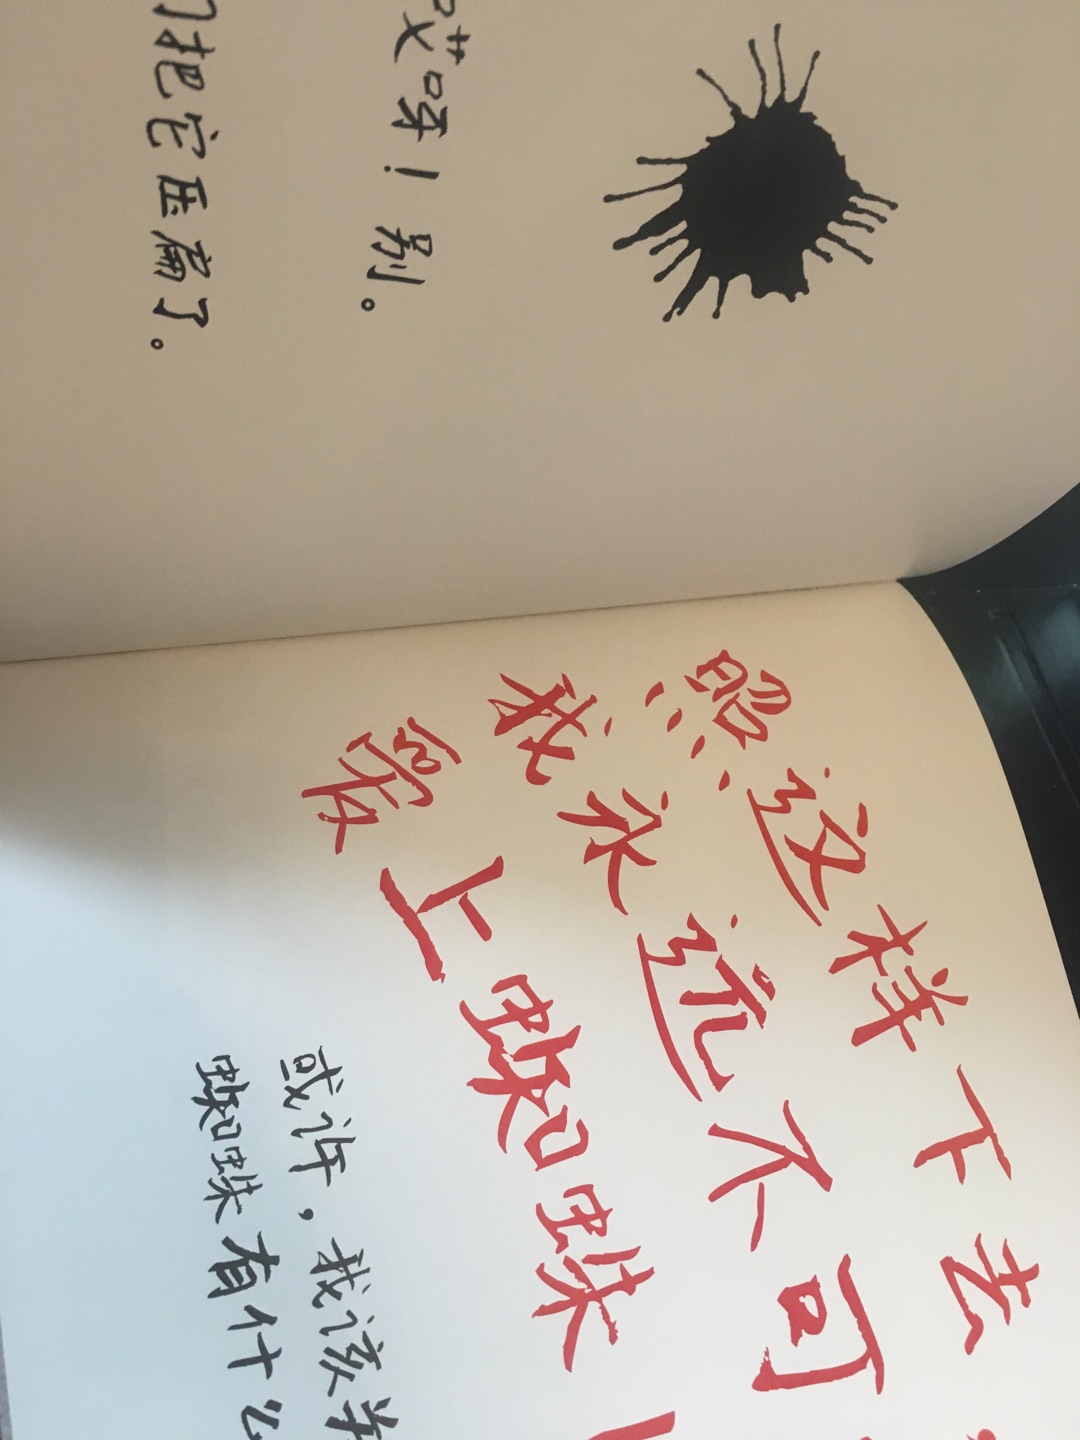 哎呀！别。
把它压扁了。
照这样下去，
我永远不可
爱上蜘蛛！
或许，我该
蜘蛛有什么